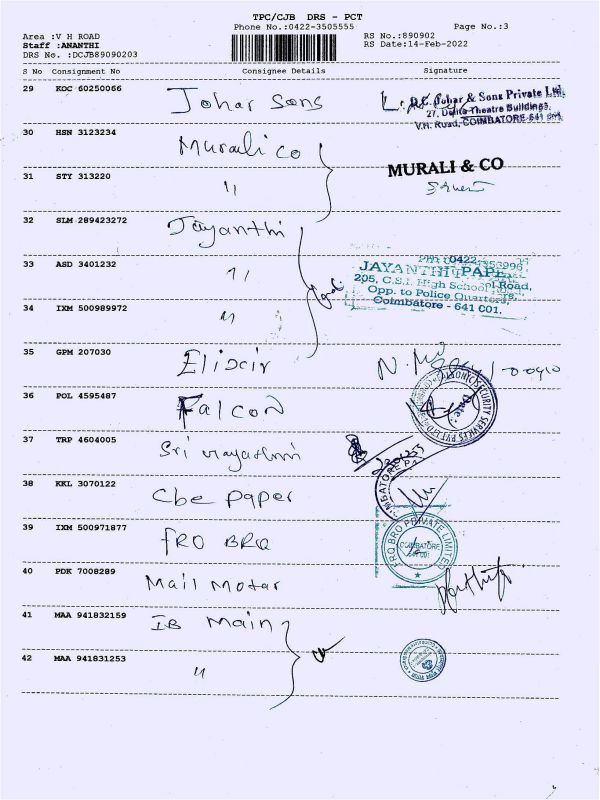 TPC/CJB DRS - PCT
Phone No.:0422-3505555 Page No.:3
Area :V H ROAD RS No.:890902
Staff :ANANTHI RS Date:14-Feb-2022
DRS No. :DCJB89090203
S No Consignment No Consignee Details Signature
29 KOC 60250066 Johar Sons
D.C. Johar & Sons Private Ltd.
27, Delite Theatre Buildings,
V.H. Road, COIMBATORE-641 001.
30 HSN 3123234 Murali co
MURALI & CO
31 STY 313220 "
32 SLM 289423272 Jayanthi
33 ASD 3401232 "
JAYANTHI PAPER
205, C.S.I. High School Road,
Opp. to Police Quarters,
Coimbatore - 641 001.
34 IXM 500989972 "
35 GPM 207030 Elixir
36 POL 4595487 Falcon
SECURITY SERVICES PVT LTD
Date:
37 TRP 4604005 Sri
38 KKL 3070122 Cbe paper
39 IXM 500971877 FRO BRO
FRO BRO PRIVATE LIMITED
COIMBATORE
641 001
40 PDK 7008289 Mail Motor
41 MAA 941832159 IB Main
42 MAA 941831253 "